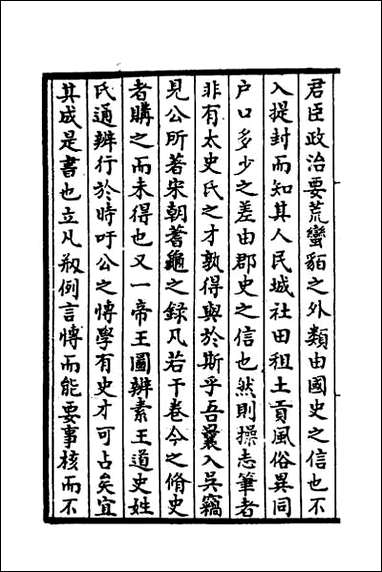 君臣政治要荒蠻貊之外類由國史之信也不
入提封而知其人民城社田租土貢風俗異同
户口多少之差由郡史之信也然則操志筆者
非有太史氏之才孰得與於斯乎吾曩入吳竊
見公所著宋朝蓍龜之録凡若干卷今之脩史
者購之而未得也又一帝王圖辨素王道史姓
氏通辨行於時吁公之愽學有史才可占矣宜
其成是書也立凡𭣣例言愽而能要事核而不